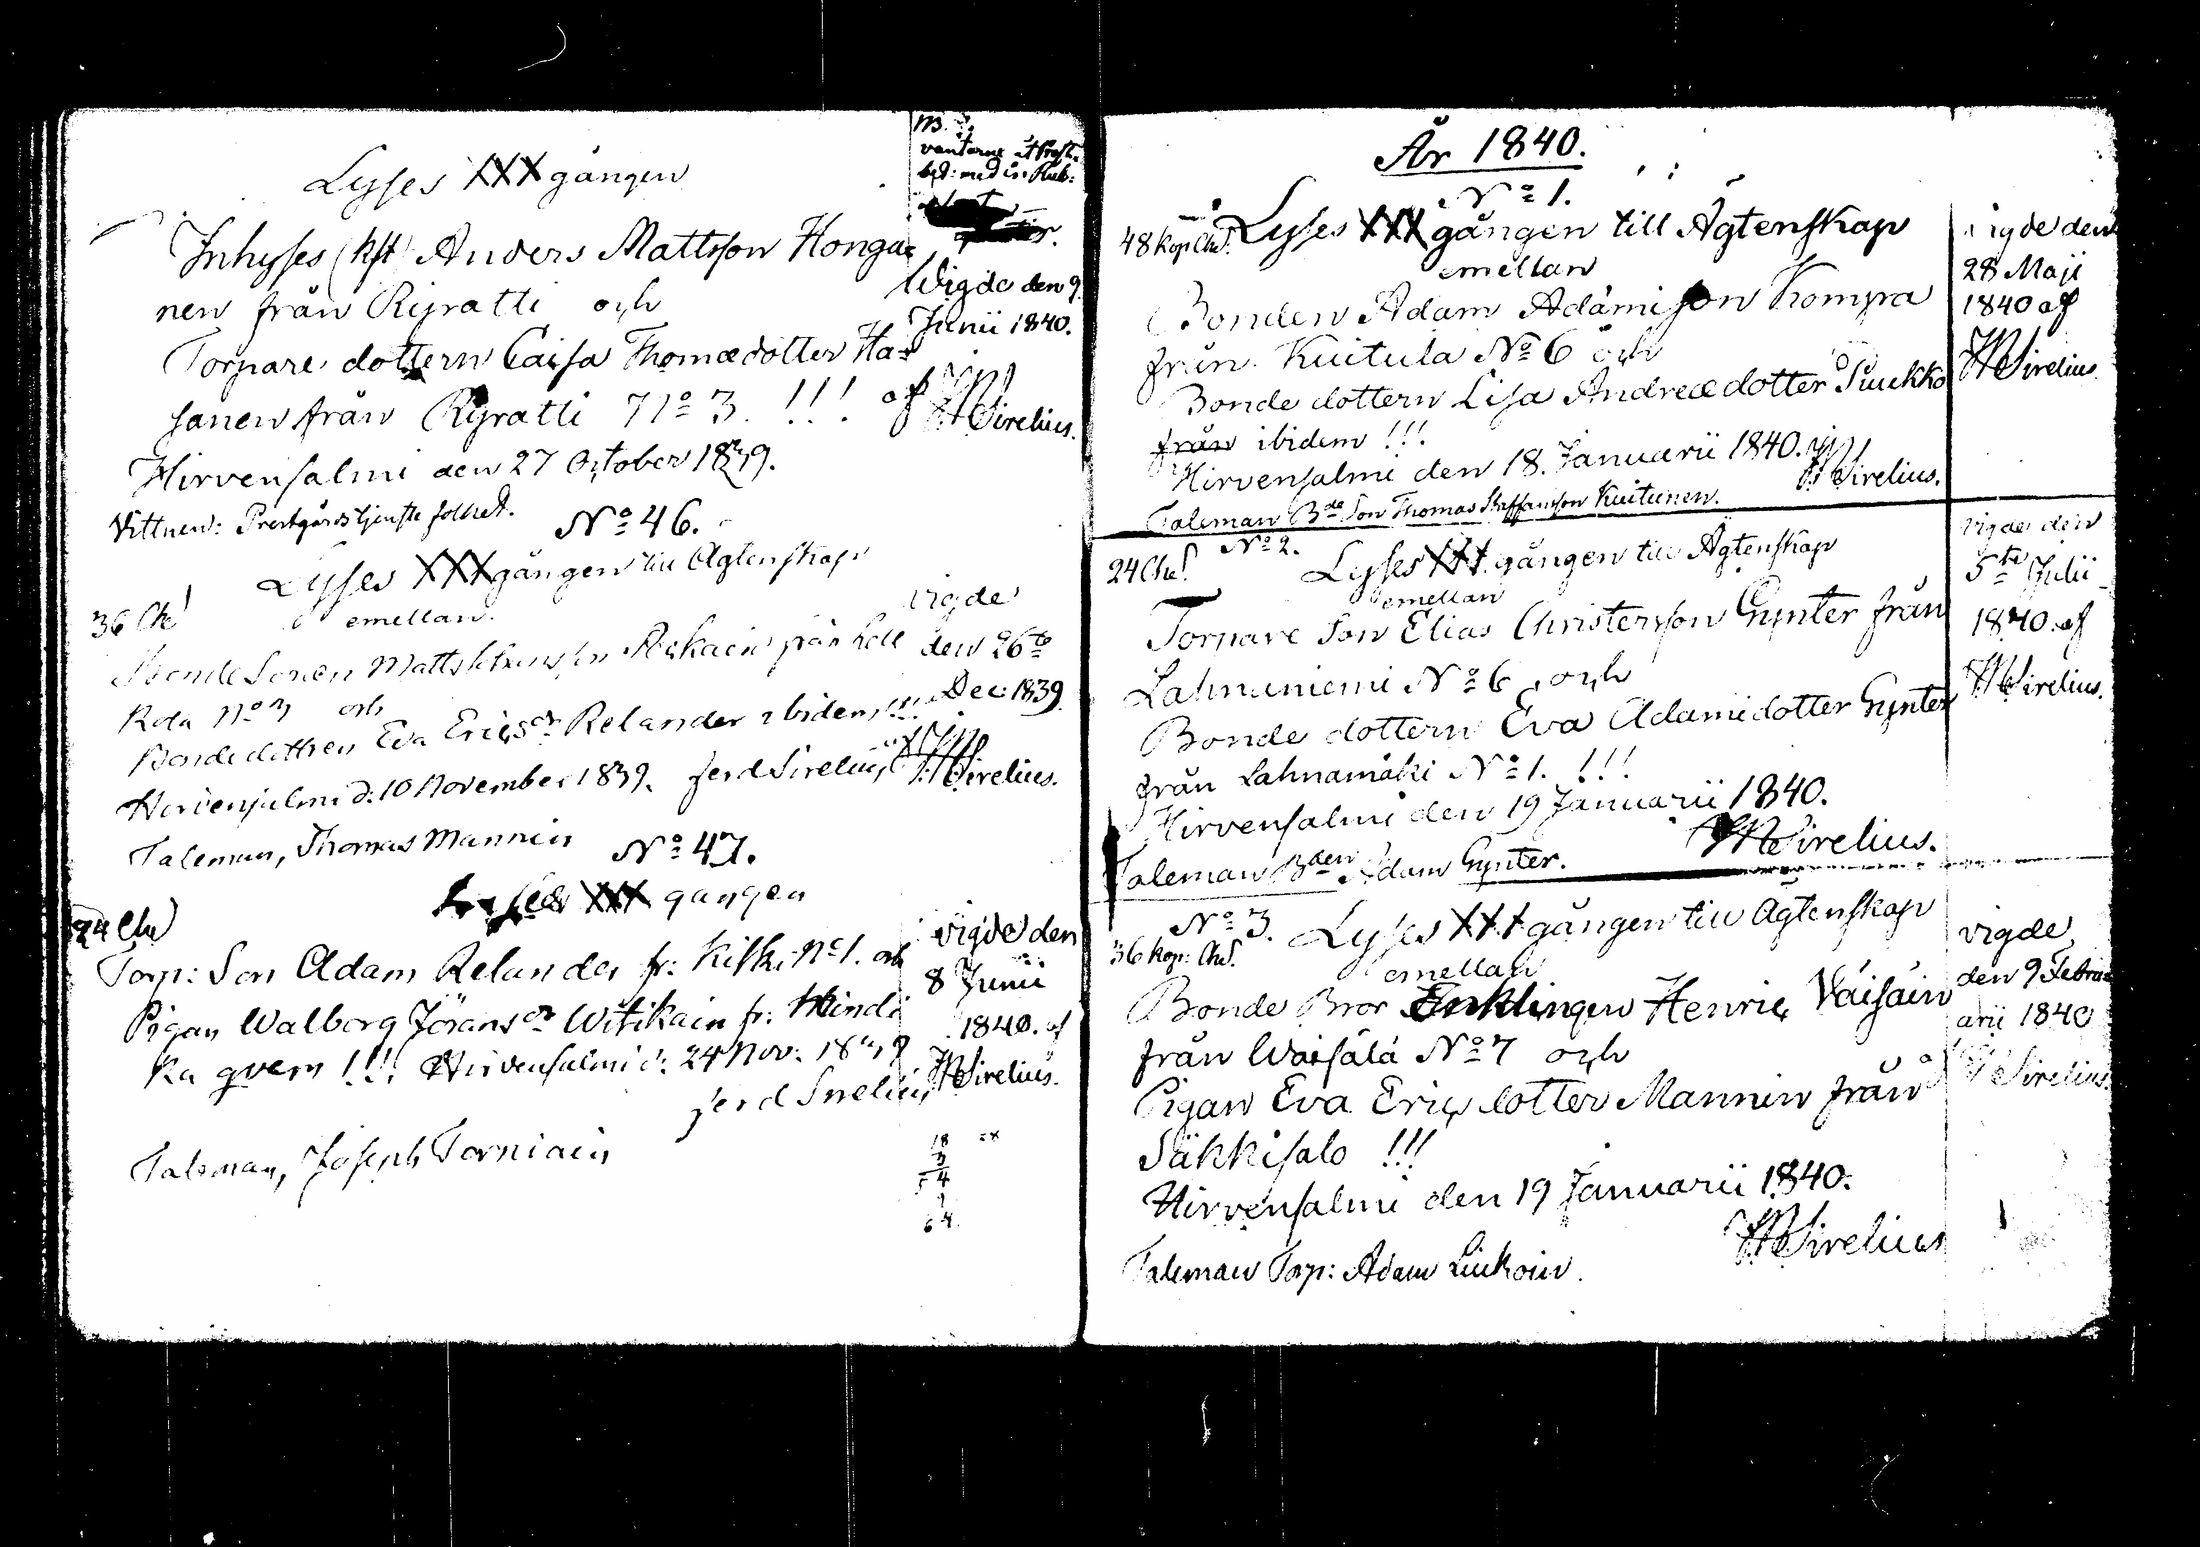 Lyses XXX gången
Inhyses Anders Mattsson Honga
nen från Ryratti och
Torpare dottern Caisa Thomædotter Ha
sanen från Ryratti No 3. !!!
Hirvensalmi den 27 October 1839.
Vittnen: Prestgårdstjenste folket.
Wigde den 9
Junii 1840.
af
Sirelius.
No 46.
36 Che
Lyses XXX gången till Ägtenskap
emellan
Bonde Sonen Matts från Hell
Kola No 3 och
Bonde dottren Eva Ericsdr Relander ibidem !!!
Hirvensalmi d: 10 November 1839. Ferd Sirelius
Taleman, Thomas Mannin
vigde
den 26te
Dec: 1839
af
Sirelius.
No 47.
24 Che
Lyses XXX gången
Torp: Son Adam Relander fr: Kilkki No 1. och
Pigan Walborg Jöransdr Witikain fr: Hindi
ka qvern !!! Hirvensalmi d: 24 Nov: 1839
Ferd Sirelius
Taleman, Joseph Torniain
vigde den
8 Junii
1840. af
Sirelius.
18
3
54
9
64.
År 1840.
No 1.
48 Kop. Che.
Lyses XXX gången till Ägtenskap
emellan
Bonden Adam Adamsson Kompa
från Kuitula No 6 och
Bonde dottern Lisa Andreædotter Suukko
från ibidem !!!
Hirvensalmi den 18. Januarii 1840.
Sirelius.
Taleman Bde Son Thomas Staffansson Kuitunen.
vigde den
28 Maji
1840 af
Sirelius.
No 2.
24 Che.
Lyses XXX gången till Ägtenskap
emellan
Torpare Son Elias Christersson Gynter från
Lahnaniemi No 6, och
Bonde dottern Eva Adamidotter Gynter
från Lahnamäki No 1. !!!
Hirvensalmi den 19 Januarii 1840.
Sirelius.
Taleman Bden Adam Gynter.
vigde den
5te Julii
1840. af
Sirelius.
No 3.
36 Kop: Che.
Lyses XXX gången till Ägtenskap
emellan
Bonde Bror Enklingen Henric Väisäin
från Waisälä No 7 och
Pigan Eva Ericsdotter Mannin från
Säkkisalo !!!
Hirvensalmi den 19 Januarii 1840.
Sirelius
Taleman Torp: Adam Liukoin.
vigde
den 9 Febru
arii 1840
af
Sirelius.